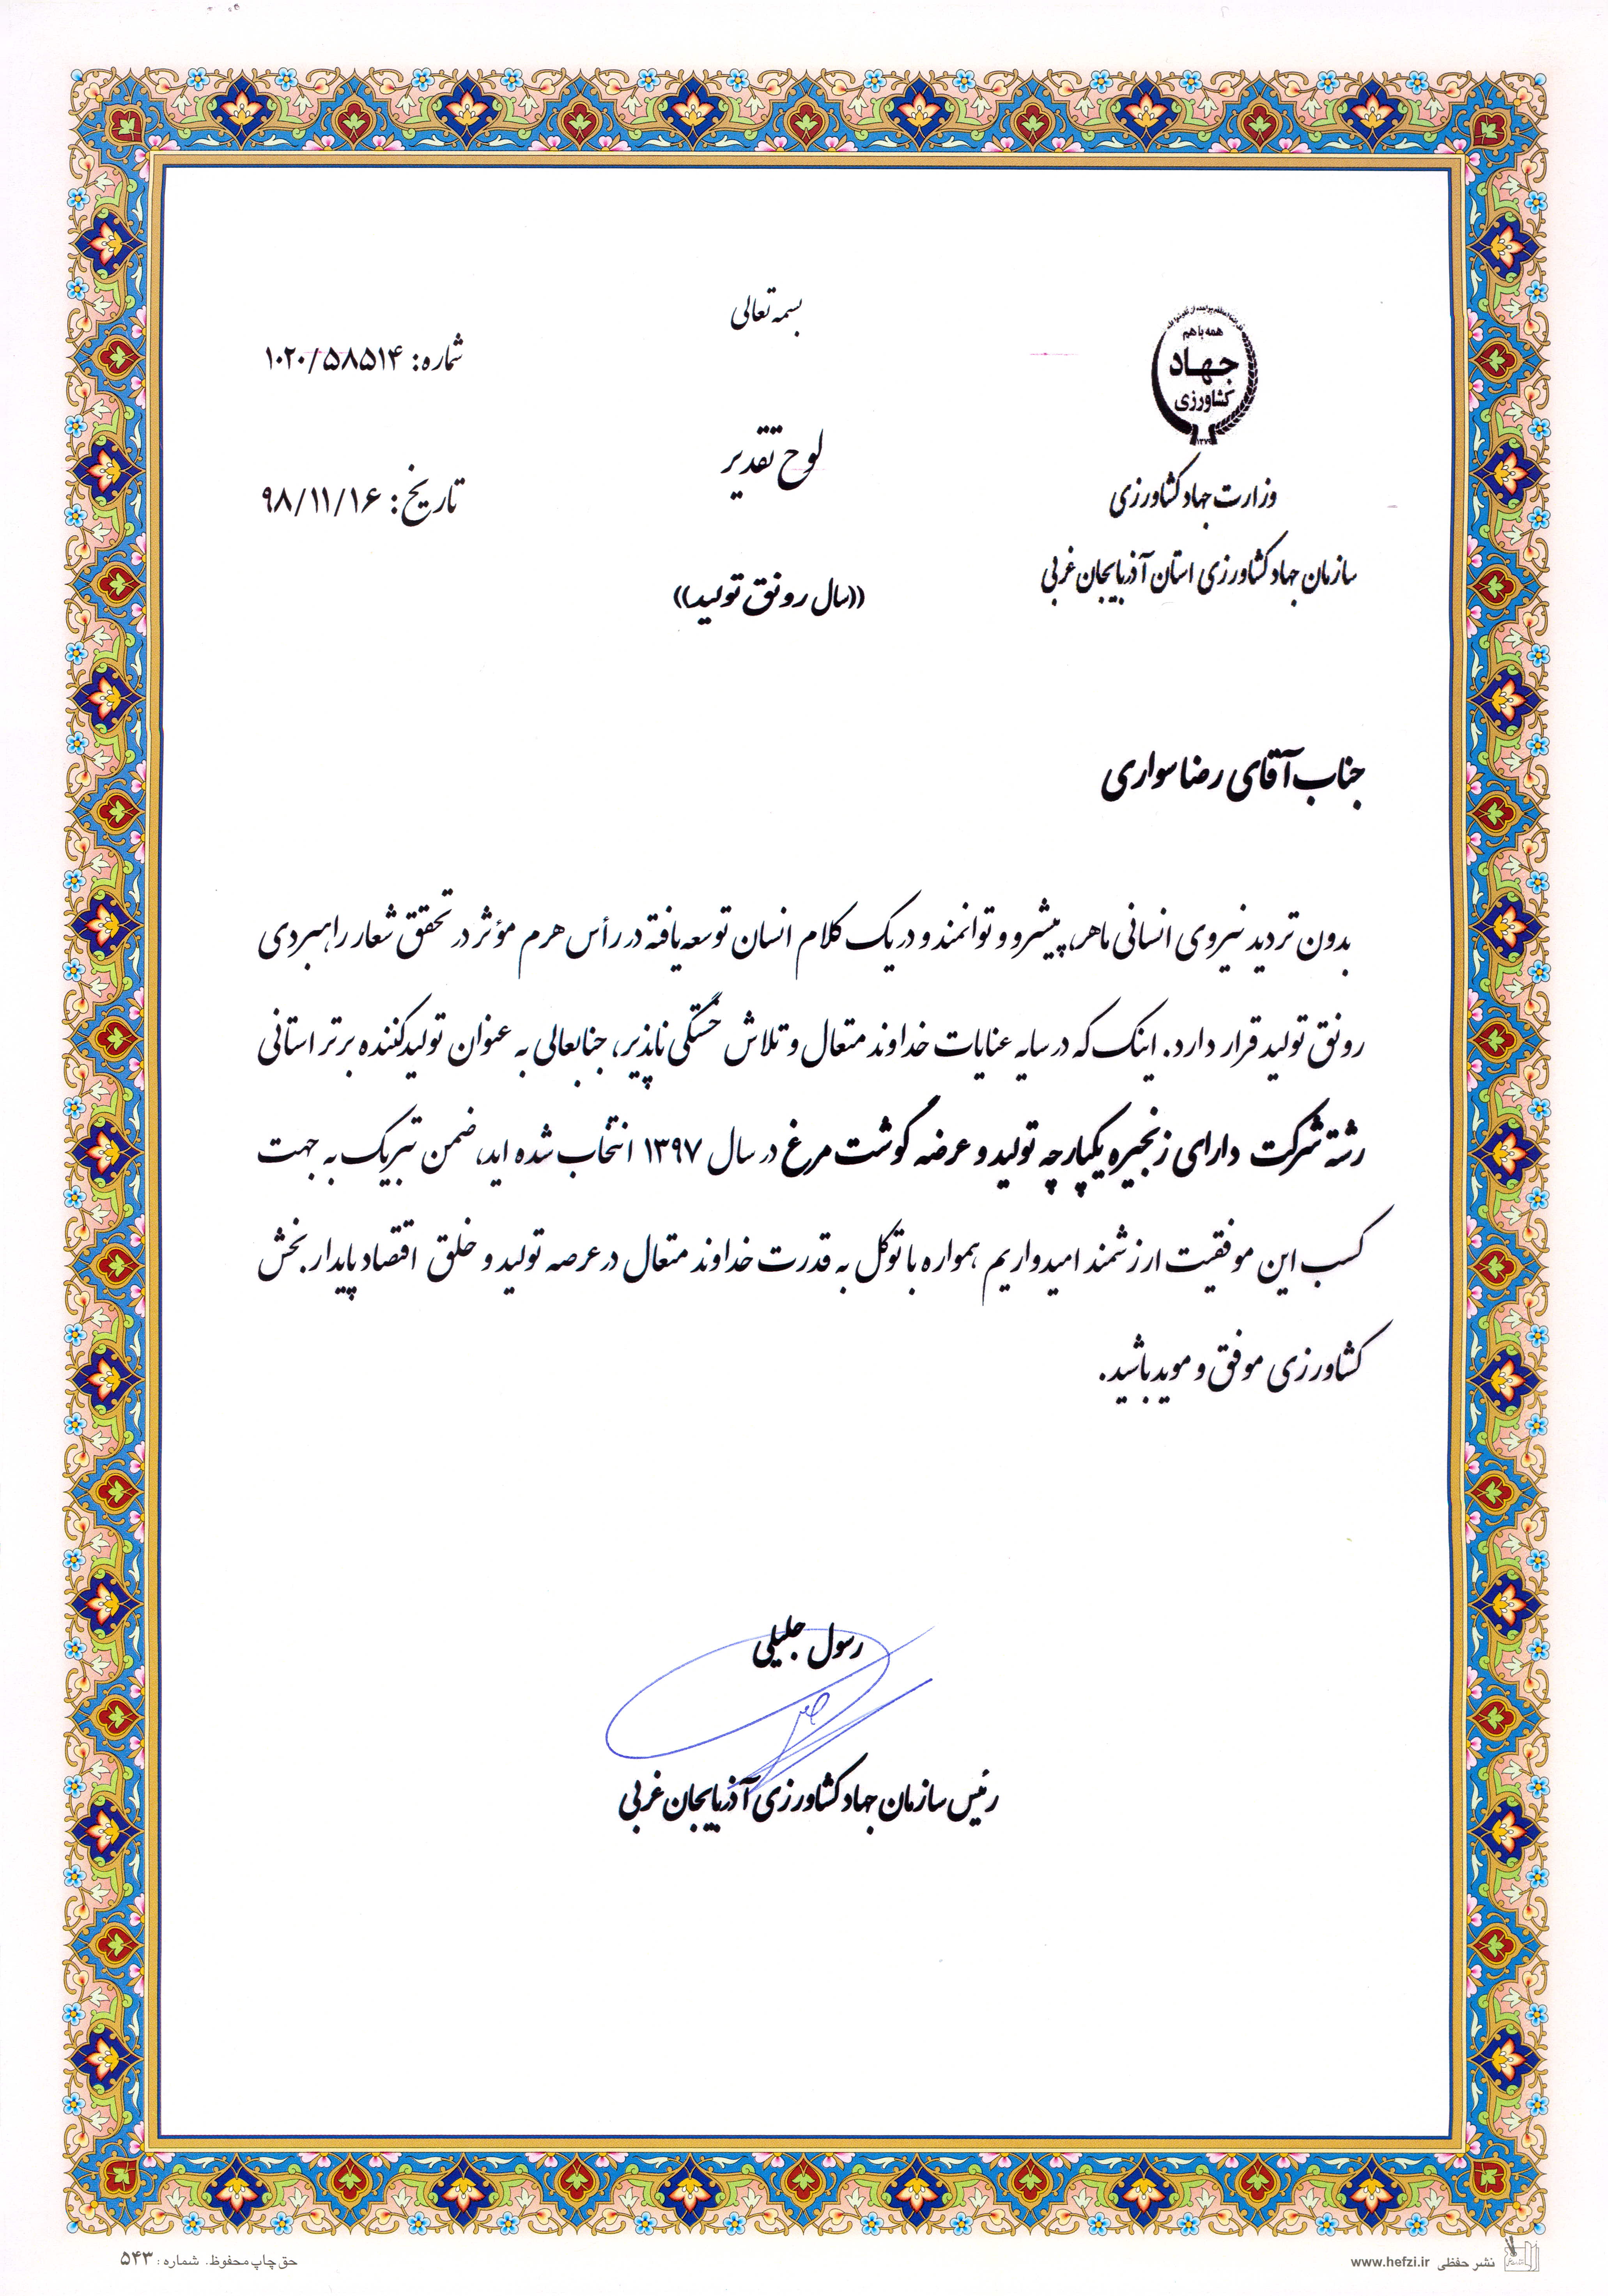 بسمه تعالی
همه با هم
جهاد
کشاورزی
۱۳۷۹
وزارت جهاد کشاورزی
سازمان جهاد کشاورزی استان آذربایجان غربی
شماره: ۱۰۲۰/۵۸۵۱۴
لوح تقدیر
تاریخ: ۹۸/۱۱/۱۶
((سال رونق تولید))
جناب آقای رضا سواری
بدون تردید نیروی انسانی ماهر، پیشرو و توانمند و در یک کلام انسان توسعه یافته در رأس هرم مؤثر در تحقق شعار راهبردی
رونق تولید قرار دارد. اینک که در سایه عنایات خداوند متعال و تلاش خستگی ناپذیر، جنابعالی به عنوان تولیدکننده برتر استانی
رشته شرکت دارای زنجیره یکپارچه تولید و عرضه گوشت مرغ در سال ۱۳۹۷ انتخاب شده اید، ضمن تبریک به جهت
کسب این موفقیت ارزشمند امیدواریم همواره با توکل به قدرت خداوند متعال در عرصه تولید و خلق اقتصاد پایدار بخش
کشاورزی موفق و موید باشید.
رسول جلیلی
رئیس سازمان جهاد کشاورزی آذربایجان غربی
نشر حفظی www.hefzi.ir
حق چاپ محفوظ. شماره: ۵۴۳